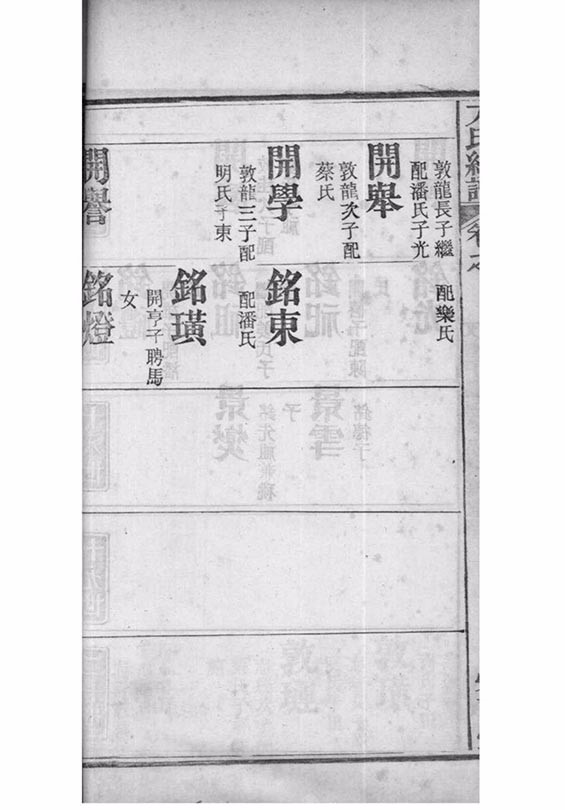 方氏續譜 卷之
敦龍長子繼
配潘氏子光
開舉
敦龍次子配
蔡氏
開學
敦龍三子配
明氏子東
開譽
配樂氏
銘東
配潘氏
銘璜
開亨子聘馬
女
銘燈